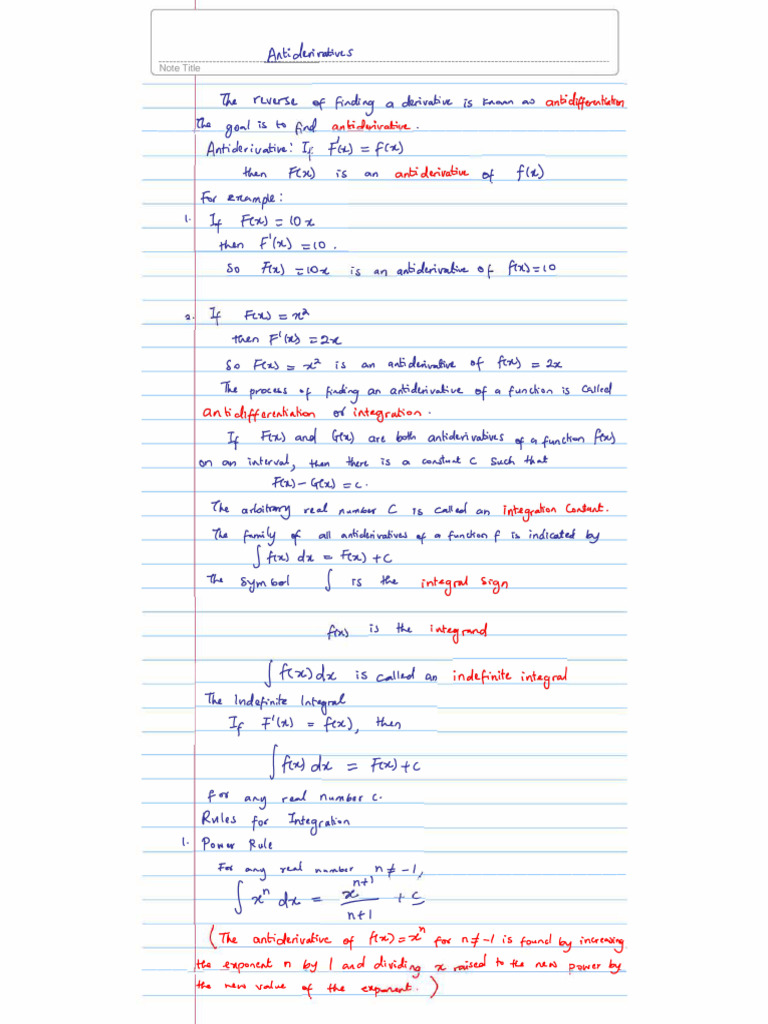 Antiderivatives
Note Title
The reverse of finding a derivative is known as antidifferentiation
The goal is to find antiderivative.
Antiderivative: If F'(x) = f(x)
then F(x) is an antiderivative of f(x)
For example:
1. If F(x) = 10x
then F'(x) = 10.
So F(x) = 10x is an antiderivative of f(x) = 10
2. If F(x) = x²
then F'(x) = 2x
So F(x) = x² is an antiderivative of f(x) = 2x
The process of finding an antiderivative of a function is called
antidifferentiation or integration.
If F(x) and G(x) are both antiderivatives of a function f(x)
on an interval, then there is a constant C such that
F(x) - G(x) = C.
The arbitrary real number C is called an integration Constant.
The family of all antiderivatives of a function f is indicated by
∫ f(x) dx = F(x) + C
The symbol ∫ is the integral sign
f(x) is the integrand
∫ f(x) dx is called an indefinite integral
The Indefinite Integral
If F'(x) = f(x), then
∫ f(x) dx = F(x) + C
for any real number C.
Rules for Integration
1. Power Rule
For any real number n ≠ -1,
∫ xⁿ dx = xⁿ⁺¹/n+1 + C
(The antiderivative of f(x) = xⁿ for n ≠ -1 is found by increasing
the exponent n by 1 and dividing x raised to the new power by
the new value of the exponent.)